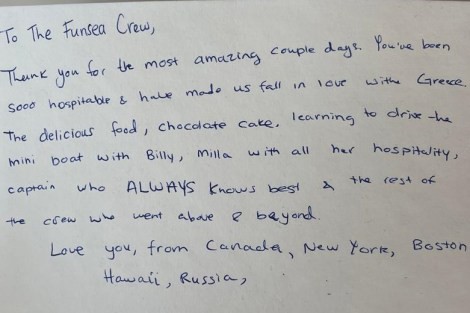 To The Funsea Crew,
Thank you for the most amazing couple days. You've been
sooo hospitable & have made us fall in love withe Greece
The delicious food, chocolate cake, learning to drive the
mini boat with Billy, Milla with all her hospitality,
captain who ALWAYS knows best & the rest of
the crew who went above & beyond.
Love you, from Canada, New York, Boston
Hawaii, Russia,